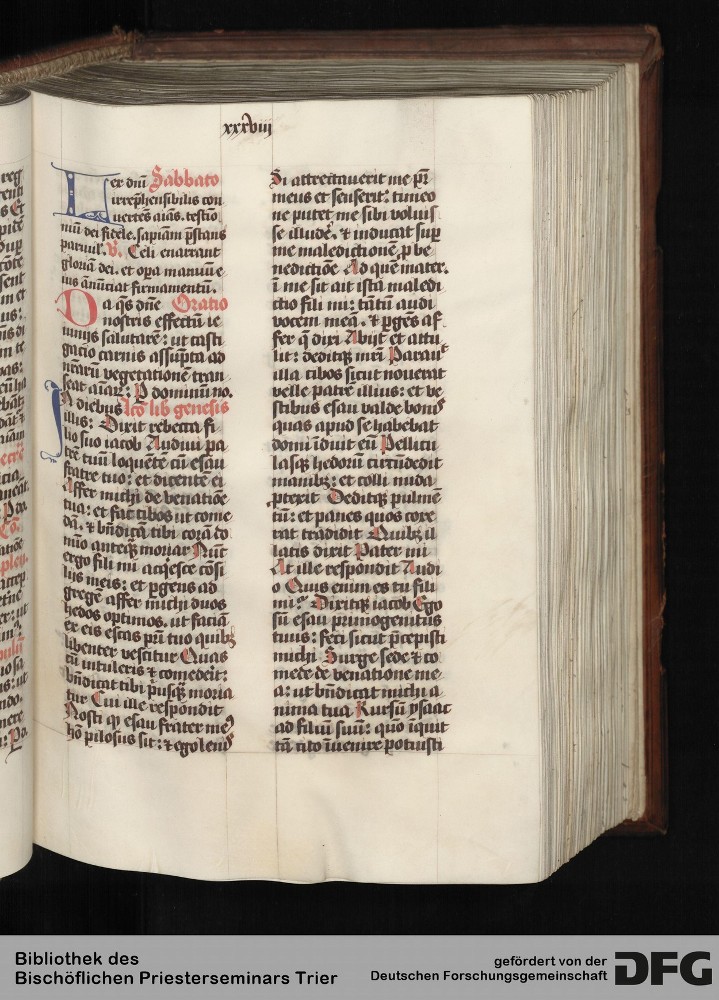 xxxviii
Lex dm̄ Sabbato
irrep̄hensibilis con
uertēs aīas. testīo
niū dei fidele. sapiam p̄stans
paruul'. V. Celi enarrant
gloriā dei. et oꝑa manuū e
ius ānūciat firmamentū.
Da q̄s dn̄e Oratio
nostris effectū ie
iunijs salutarē: ut casti
gacio carnis assūpta ad
nr̄arū vegetationē tran
seat aīarū: P dominum no.
In diebus Lc̄o lib genesis
illis: Dixit rebecca fi
lio suo iacob Audiui pa
trē tuū loquētē cū esau
fratre tuo: et dicentē ei
Affer michi de venatiōe
tua: et fac cibos ut come
dā. ⁊ bn̄dicā tibi corā do
mīo anteqꝫ moriar Nūc
ergo fili mi acq̇esce cōsi
lijs meis: et ꝑgens ad
gregē affer michi duos
hedos optimos. ut faciā
ex eis escas pr̄i tuo quibꝫ
libenter vescitur Quas
cū intuleris ⁊ comedeīt:
bn̄dicat tibi p̄usqꝫ moria
tur Cui ille respondit
Nosti q̄ esau frater me⁹
hō pilosus sit: ⁊ ego lenis
Si attrectauerit me pr̄
meus et senserit: timeo
ne putet me sibi voluis
se illudē. ⁊ inducat suꝑ
me maledictionē ꝓ be
nedictiōe Ad quē mater.
ī me sit ait ista maledi
ctio fili mi: tātū audi
vocem meā. ⁊ ꝑgēs af
fer q̄ dixi Abijt et attu
lit: deditqꝫ mr̄i Parauit
illa cibos sicut nouerat
velle patrē illius: et ve
stibus esau valde bonis
quas apud se habebat
domi īduit eū Pellicu
lasqꝫ hedorū circūdedit
manibꝫ: et colli nuda
ptexit Deditqꝫ pulmē
tū: et panes quos coxe
rat tradidit Quibꝫ il
latis dixit Pater mi
At ille respondit Audi
o Quis enim es tu fili
mi? Dixitqꝫ iacob Ego
sū esau primogenitus
tuus: feci sicut p̄cepisti
michi Surge sede ⁊ co
mede de venatione me
a: ut bn̄dicat michi a
nima tua Rursū ysaac
ad filiū suū: quō īquit
tā cito īuenire potuisti
Bibliothek des
Bischöflichen Priesterseminars Trier
gefördert von der
Deutschen Forschungsgemeinschaft
DFG